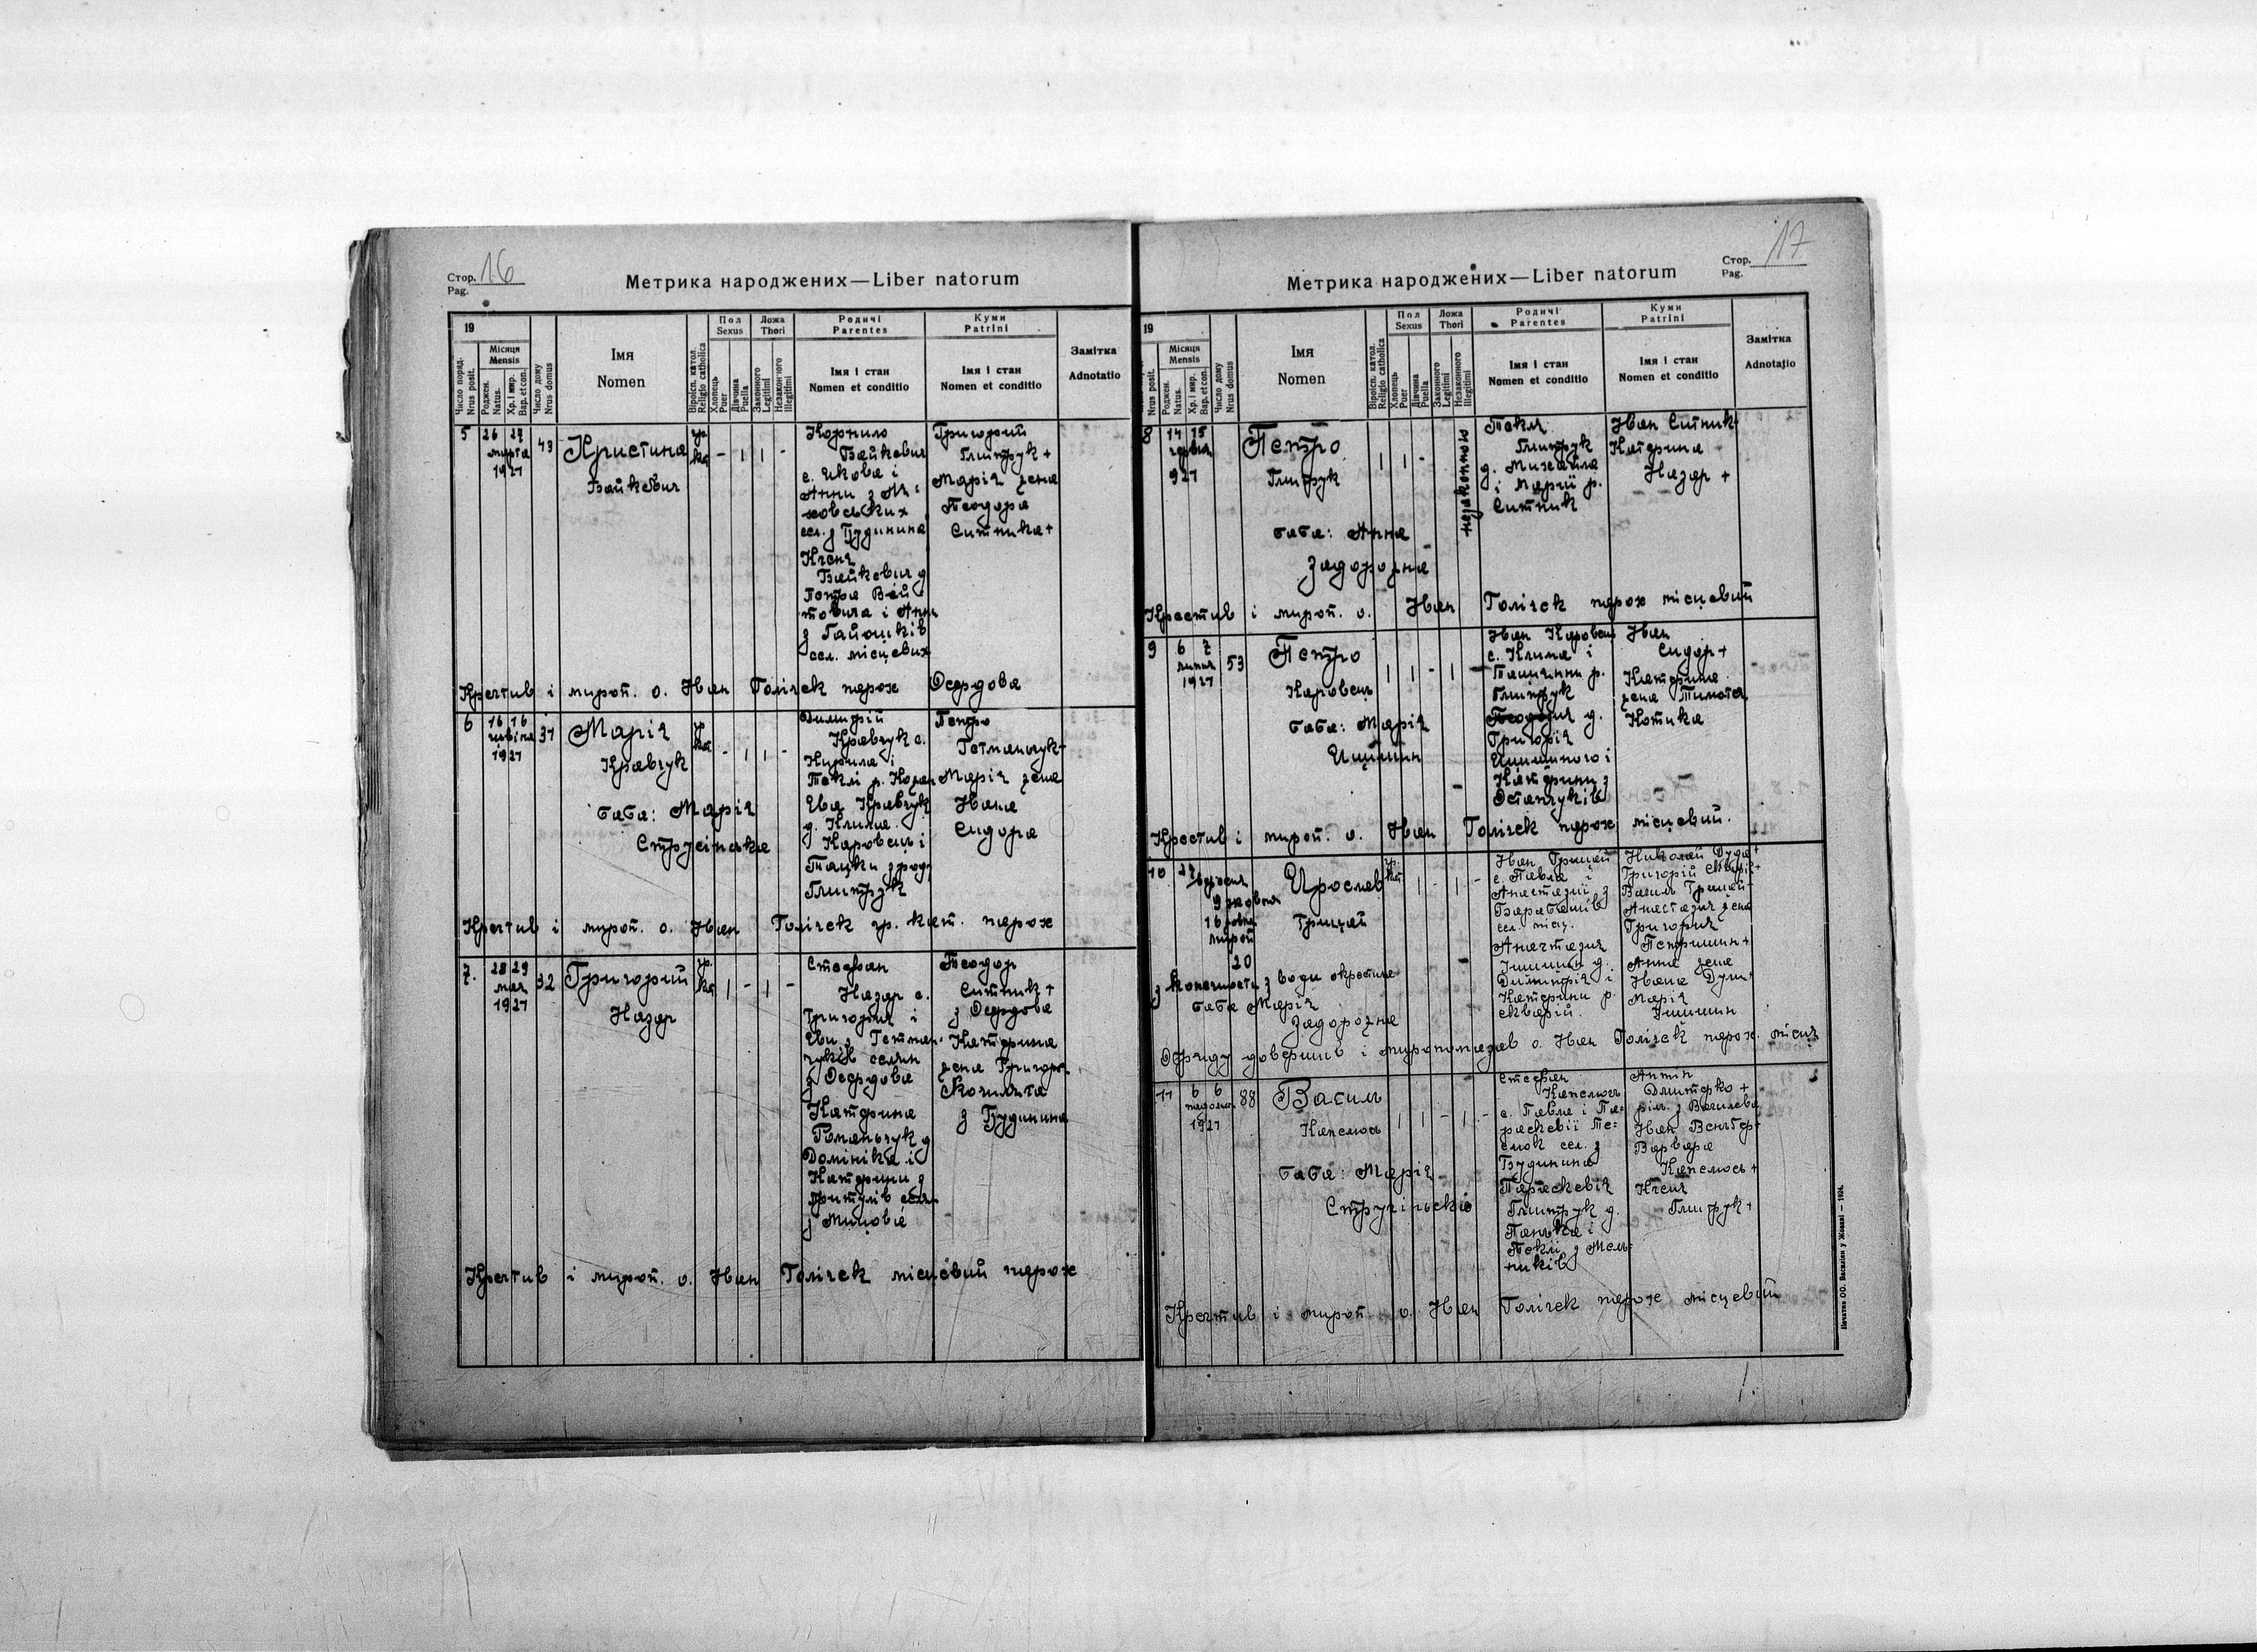 Стор. 16
Pag.
Метрика народжених—Liber natorum
19
Число поряд.
Nrus posit.
Місяця
Mensis
Роджен.
Natus.
Хр. і мир.
Bap. et con.
Число дому
Nrus domus
Імя
Nomen
Віроісп. катол.
Religio catholica
Пол
Sexus
Хлопець
Puer
Дівчина
Puella
Ложа
Thori
Законного
Legitimi
Незаконного
Illegitimi
Родичі
Parentes
Імя і стан
Nomen et conditio
Куми
Patrini
Імя і стан
Nomen et conditio
Замітка
Adnotatio
5
26 27
марта
1927
43
Кристина
Байкевич
гр.
ка
- 1 1 -
Корнило
Байкевич
с. Якова і
Анни з
ховських
сел. з Будинина
Ксеня
Байкевич д
Петра Вой
товича і Анни
з Гайошків
сел. місцевих
Григорій
Глитрук +
Марія жена
Теодора
Ситника +
Крестив і мироп. о. Иван Голічек парох Осердова
6
16 16
цвітня
1927
31
Марія
Кравчук
гр.
ка
- 1 1 -
баба: Марія
Струсінська
Димитрій
Кравчук с.
Кирила і
Теклі р.
Ева Кравчук
д. Клима
Каровець і
Танки з роду
Глитрук
Петро
Гетманчук +
Марія жена
Ивана
Сидора
Крестив і мироп. о. Иван Голічек гр. кат. парох
7.
28 29
мая
1927
32
Григорий
Назар
гр.
ка
1 - 1 -
Стефан
Назар с.
Григорія і
Еви з Гетман-
чуків селян
з Осердова
Катерина
Романьчук д
Домініка і
Катерини з
Притулів селян
з
Теодор
Ситник +
з Осердова
Катерина
жена Григорія
з Будинина
Крестив і мироп. о. Иван Голічек місцевий парох
Стор. 17
Pag.
Метрика народжених—Liber natorum
19
Nrus posit.
Місяця
Mensis
Роджен.
Natus.
Хр. і мир.
Bap. et con.
Число дому
Nrus domus
Імя
Nomen
Віроісп. катол.
Religio catholica
Пол
Sexus
Хлопець
Puer
Дівчина
Puella
Ложа
Thori
Законного
Legitimi
Незаконного
Illegitimi
Родичі
Parentes
Імя і стан
Nomen et conditio
Куми
Patrini
Імя і стан
Nomen et conditio
Замітка
Adnotatio
8
14 15
червня
927
Петро
Глитрук
1 1 -
незаконного
баба: Анна
Задорожна
Текля
Глитрук
д. Михайла
і Марії р.
Ситник
Иван Ситник +
Катерина
Назар +
Крестив і мироп. о. Иван Голічек парох місцевий
9
6 7
липня
1927
53
Петро
Каровець
1 1 - 1 -
баба: Марія
Ицишин
Иван Каровець
с. Клима і
р.
Глитрук
д.
Григорія
Ицишиного і
Катерини з
Остапчуків
Иван
Сидор +
Катерина
жена Тимотея
Котика
Крестив і мироп. о. Иван Голічек парох місцевий.
10
27
вересня
9 жовтня
16 жовтня
мироп
20
Ярослав
Грицай
гр.
кат
1 - 1 -
з конечности з води окрестила
баба Марія
Задорожна
Иван Грицай
с. Павла і
Анастазії з
Барабашів
сел. місц.
Анастазия
Ицишин д.
Димитрія і
Катерини р.
Скварій.
Николай Дуда +
Григорій Скварій +
Василь Грицай +
Анастазия жена
Григорія
Петришин +
Анна жена
Ивана
Марія
Ицишин
Обряду довершив і миропомазав о. Иван Голічек парох місцев
11
6 6
падолиста
1927
88
Василь
Капелюх
1 1 - 1 -
баба: Марія
Струсінська
Стефан
Капелюх
с. Павла і Па-
раскевії Те-
слюк сел. з
Будинина
Параскевія
Глитрук д.
Панька і
Теклі з Мель-
ників
Антін
Дмитерко +
ріл. з Василева
Иван
Варвара
Капелюх +
Ксеня
Глитрук +
Крестив і мироп. о. Иван Голічек парох місцевий
Печатня ОО. Василіян у Жовкві — 1924.